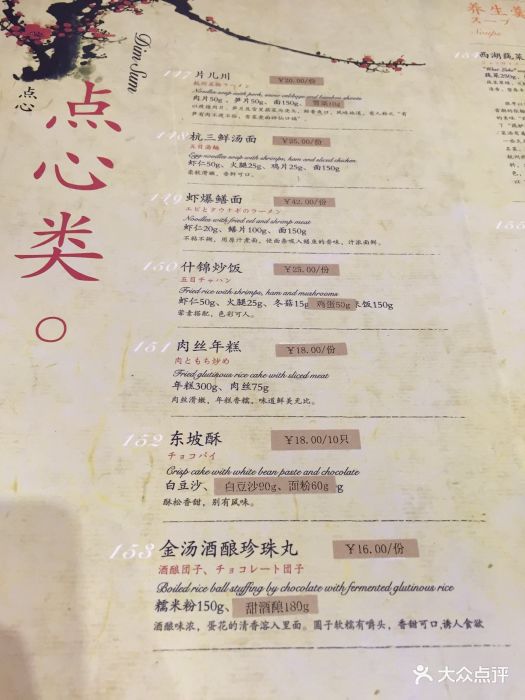 养生羹
スープ
Soups
Dim Sum
点心
点心类
147 片儿川 ¥20.00/份
杭州名物ラーメン
Noodles soup with pork, snow cabbage and bamboo shoots
肉片50g、笋片50g、面150g、雪菜10g
148 杭三鲜汤面
五目湯麺
Egg noodles soup with shrimps, ham and sliced chicken
虾仁50g、火腿25g、鸡片25g、面150g
柔软滑嫩、香鲜可口。
149 虾爆鳝面 ¥42.00/份
エビとタウナギのラーメン
Noodles with fried eel and shrimp meat
虾仁20g、鳝片100g、面150g
不粘不糊，用原汁煮面，使面条吸入鳝鱼的香味，汁浓面鲜。
150 什锦炒饭 ¥25.00/份
五目チャハン
Fried rice with shrimps, ham and mushrooms
虾仁50g、火腿25g、冬菇15g 鸡蛋50g 米饭150g
荤素搭配，色彩可人。
151 肉丝年糕 ¥18.00/份
肉ともち炒め
Fried glutinous rice cake with sliced meat
年糕300g、肉丝75g
肉丝滑嫩，年糕香糯，味道鲜美无比。
152 东坡酥 ¥18.00/10只
チョコパイ
Crisp cake with white bean paste and chocolate
白豆沙、白豆沙90g、面粉60g g
酥松香甜，别有风味。
153 金汤酒酿珍珠丸 ¥16.00/份
酒酿団子、チョコレート団子
Boiled rice ball stuffing by chocolate with fermented glutinous rice
糯米粉150g、甜酒酿180g
酒酿味浓，蛋花的清香溶入里面。圆子软糯有嚼头，香甜可口，诱人食欲
154 西湖莼菜
"West Lake"
莼菜250g、
155
大众点评